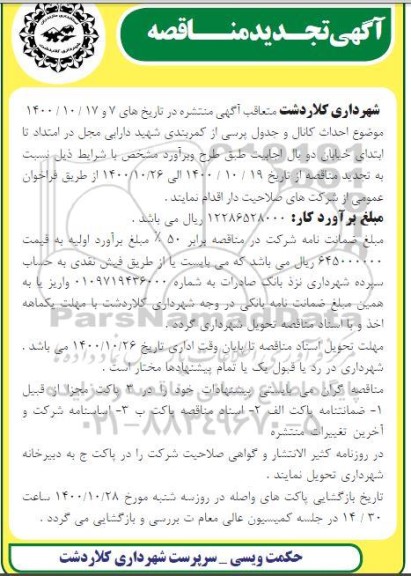 آگهی تجدید مناقصه
شهرداری کلاردشت متعاقب آگهی منتشره در تاریخ های ۷ و ۱۷ / ۱۰ / ۱۴۰۰
موضوع احداث کانال و جدول پرسی از کمربندی شهید دارابی مجل در امتداد تا
ابتدای خیابان دو یال اجابیت طبق طرح وبرآورد مشخص با شرایط ذیل نسبت
به تجدید مناقصه از تاریخ ۱۹ / ۱۰ / ۱۴۰۰ الی ۱۴۰۰/۱۰/۲۶ از طریق فراخوان
عمومی از شرکت های صلاحیت دار اقدام نمایند .
مبلغ برآورد کار: ۱۲۲۸۶۵۲۸۰۰۰ ریال می باشد .
مبلغ ضمانت نامه شرکت در مناقصه برابر ۵۰ ٪ مبلغ برآورد اولیه به قیمت
۶۴۵۰۰۰۰۰۰ ریال می باشد که می بایست یا از طریق فیش نقدی به حساب
سپرده شهرداری نزد بانک صادرات به شماره ۰۱۰۹۷۱۹۴۳۶۰۰۰ واریز یا به
همین مبلغ ضمانت نامه بانکی در وجه شهرداری کلاردشت با مهلت یکماهه
اخذ و با اسناد مناقصه تحویل شهرداری گردد .
مهلت تحویل اسناد مناقصه تا پایان وقت اداری تاریخ ۱۴۰۰/۱۰/۲۶ می باشد .
شهرداری در رد یا قبول یک یا تمام پیشنهادها مختار است .
مناقصه گران می بایستی پیشنهادات خود را در ۳ پاکت مجزا از قبیل
۱- ضمانتنامه پاکت الف ۲- اسناد مناقصه پاکت ب ۳- اساسنامه شرکت و
آخرین تغییرات منتشره
در روزنامه کثیر الانتشار و گواهی صلاحیت شرکت را در پاکت ج به دبیرخانه
شهرداری تحویل نمایند .
تاریخ بازگشایی پاکت های واصله در روزسه شنبه مورخ ۱۴۰۰/۱۰/۲۸ ساعت
۳۰ / ۱۴ در جلسه کمیسیون عالی معام ت بررسی و بازگشایی می گردد .
حکمت ویسی _ سرپرست شهرداری کلاردشت
ParsNamadData
۰۲۱-۸۸۳۴۹۶۷۰-۵